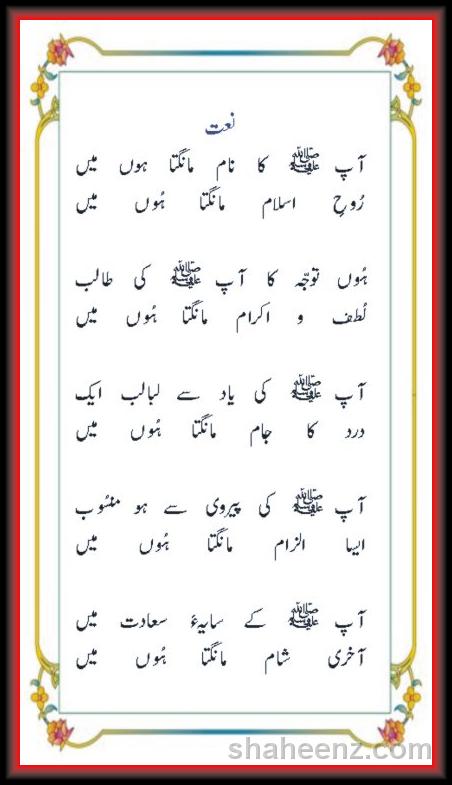 نعت
آپ ﷺ کا نام مانگتا ہوں میں
رُوحِ اسلام مانگتا ہُوں میں
ہُوں توجّہ کا آپ ﷺ کی طالب
لُطف و اکرام مانگتا ہُوں میں
آپ ﷺ کی یاد سے لبالب ایک
درد کا جام مانگتا ہُوں میں
آپ ﷺ کی پیروی سے ہو منسُوب
ایسا الزام مانگتا ہُوں میں
آپ ﷺ کے سایۂ سعادت میں
آخری شام مانگتا ہُوں میں
shaheenz.com